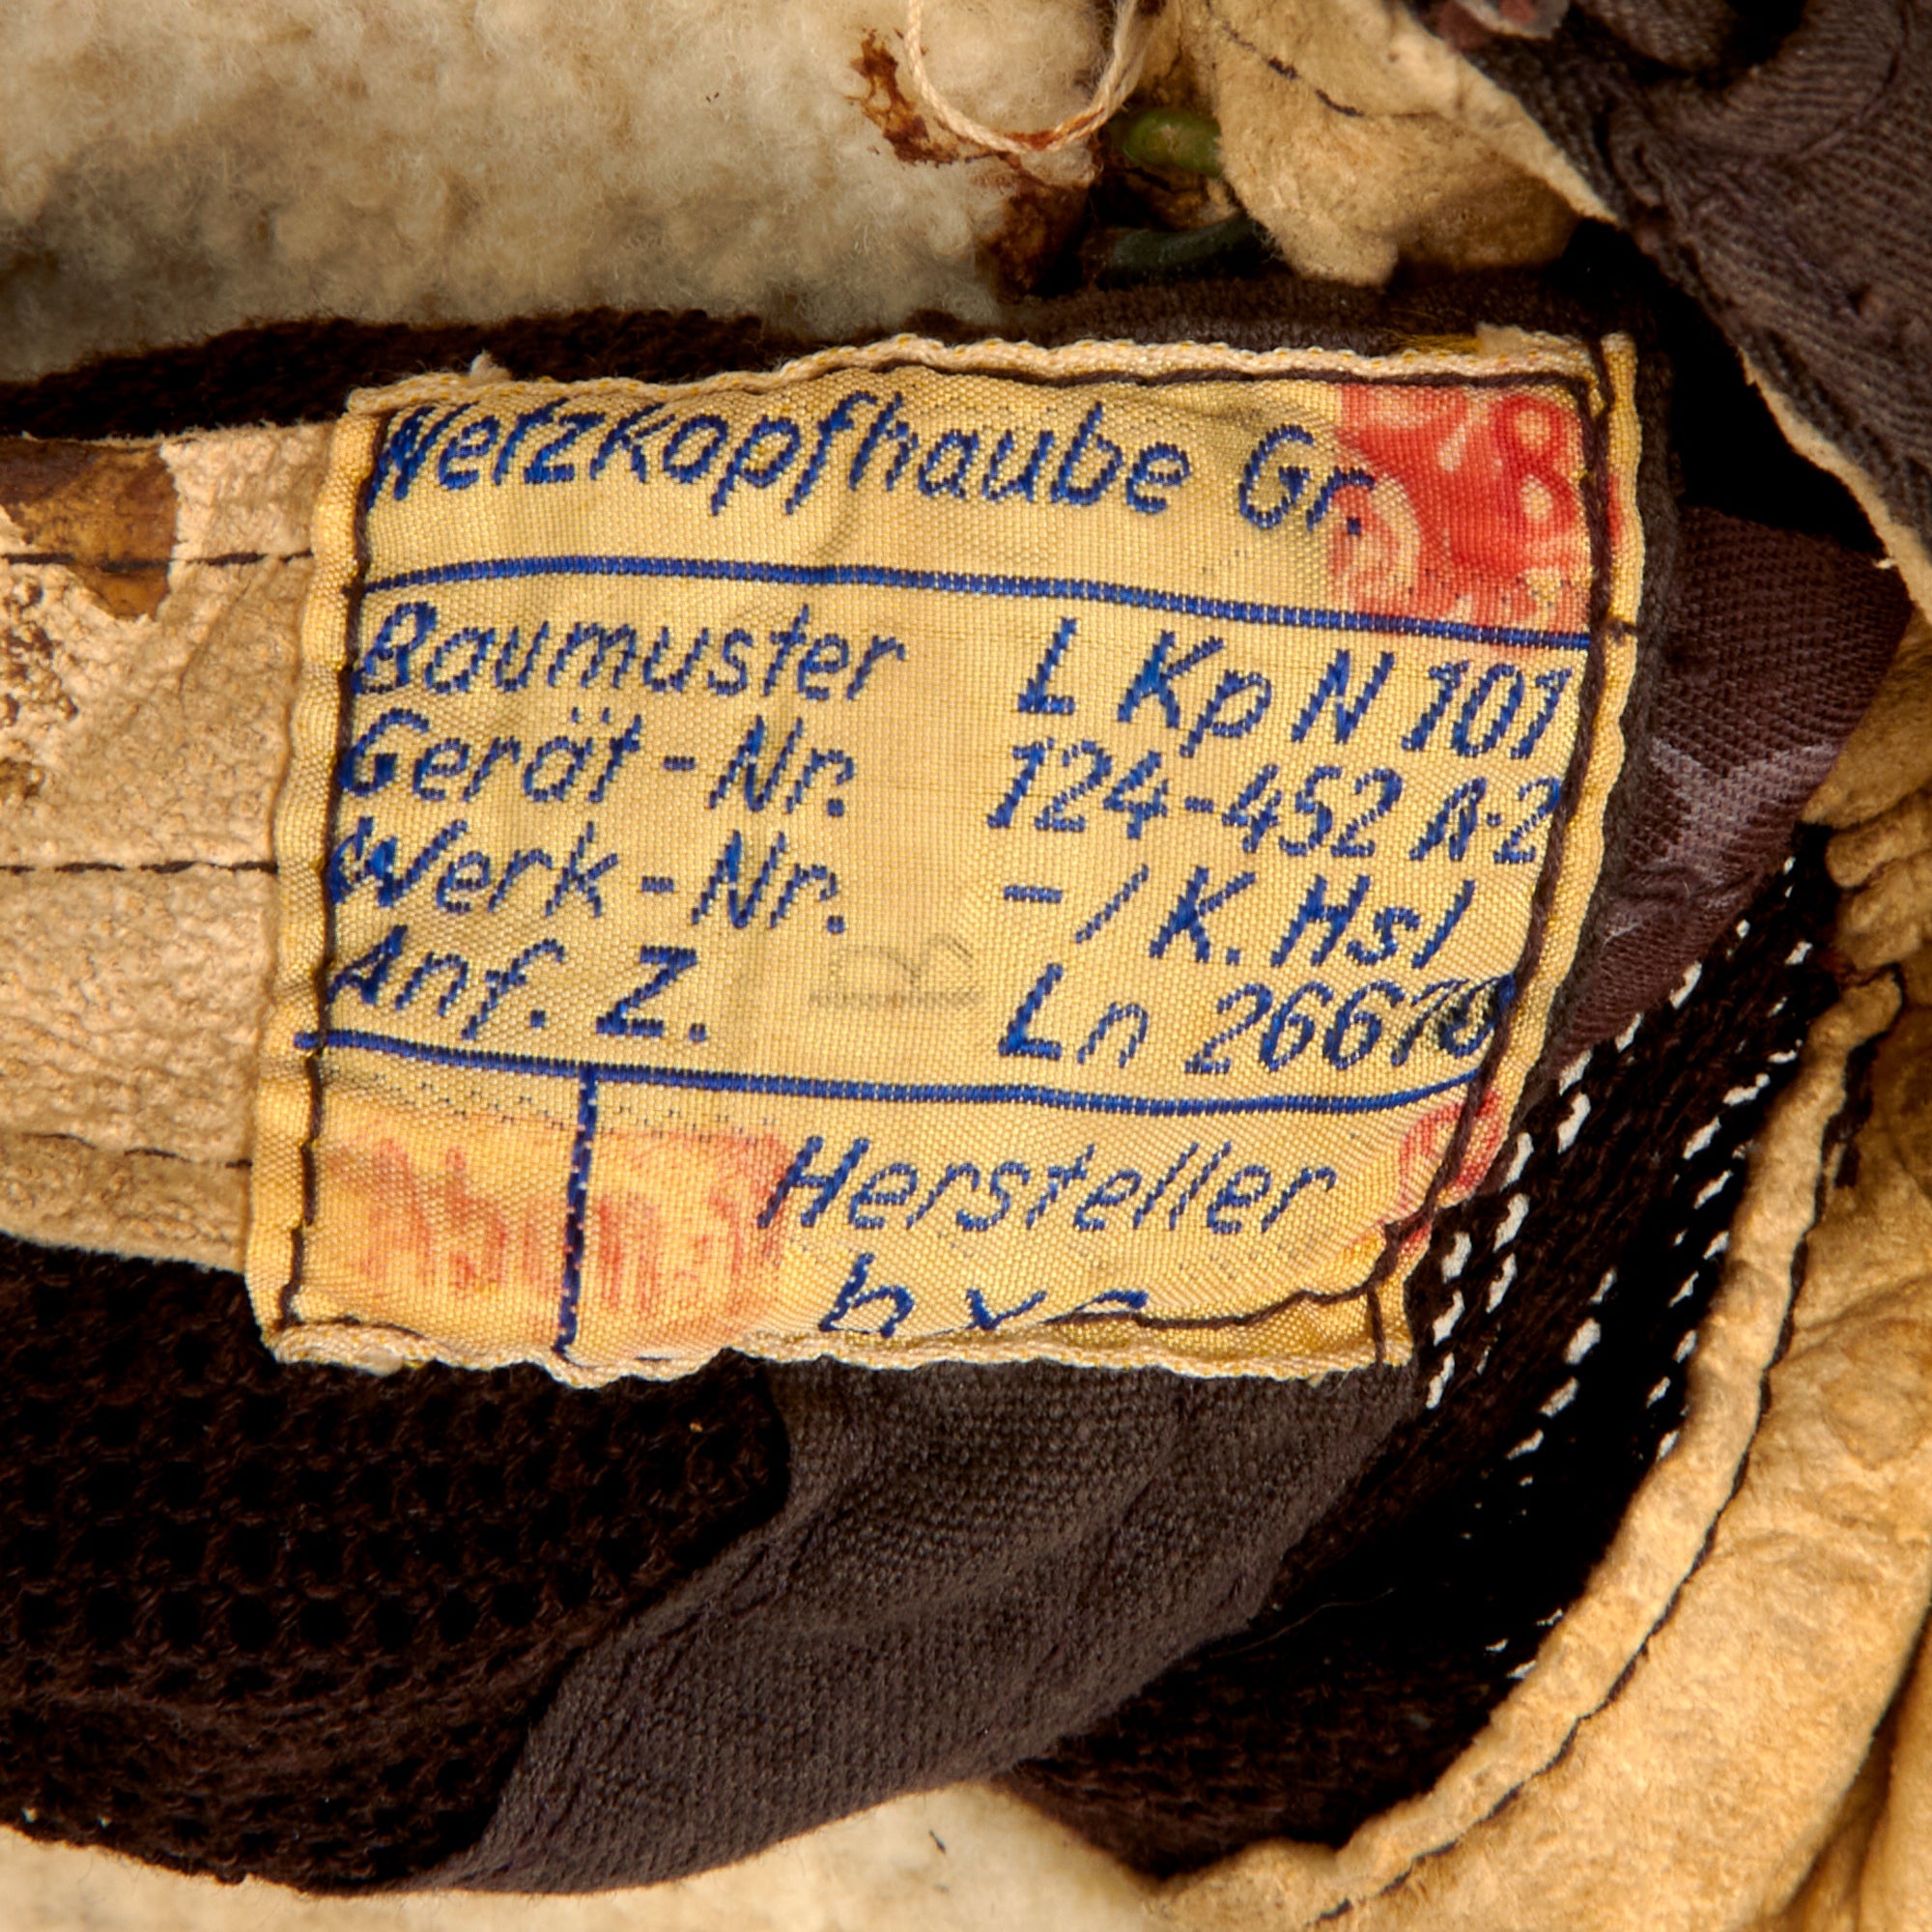 Netzkopfhaube Gr.
Baumuster L Kp N 101
Gerät-Nr. 124-452 A-2
Werk-Nr. -/K. Hsl
Anf. Z. Ln 26670
Hersteller